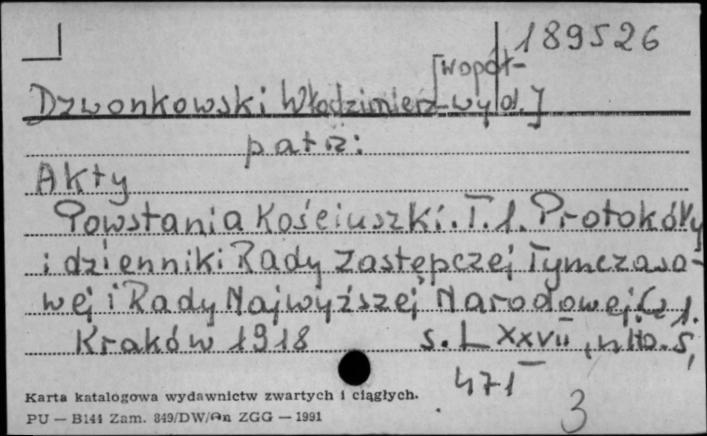 189526
[wopół-
Dzwonkowski Włodzimierz wyd.]
patrz:
Akty
Powstania Kościuszki. T. 1. Protokóły
i dzienniki Rady Zastępczej Tymczaso-
wej i Rady Najwyższej Narodowej. Cz 1.
Kraków 1918 s. LXXVII, nlb. 5,
471
3
Karta katalogowa wydawnictw zwartych i ciągłych.
PU — B141 Zam. 849/DW/An ZGG — 1991